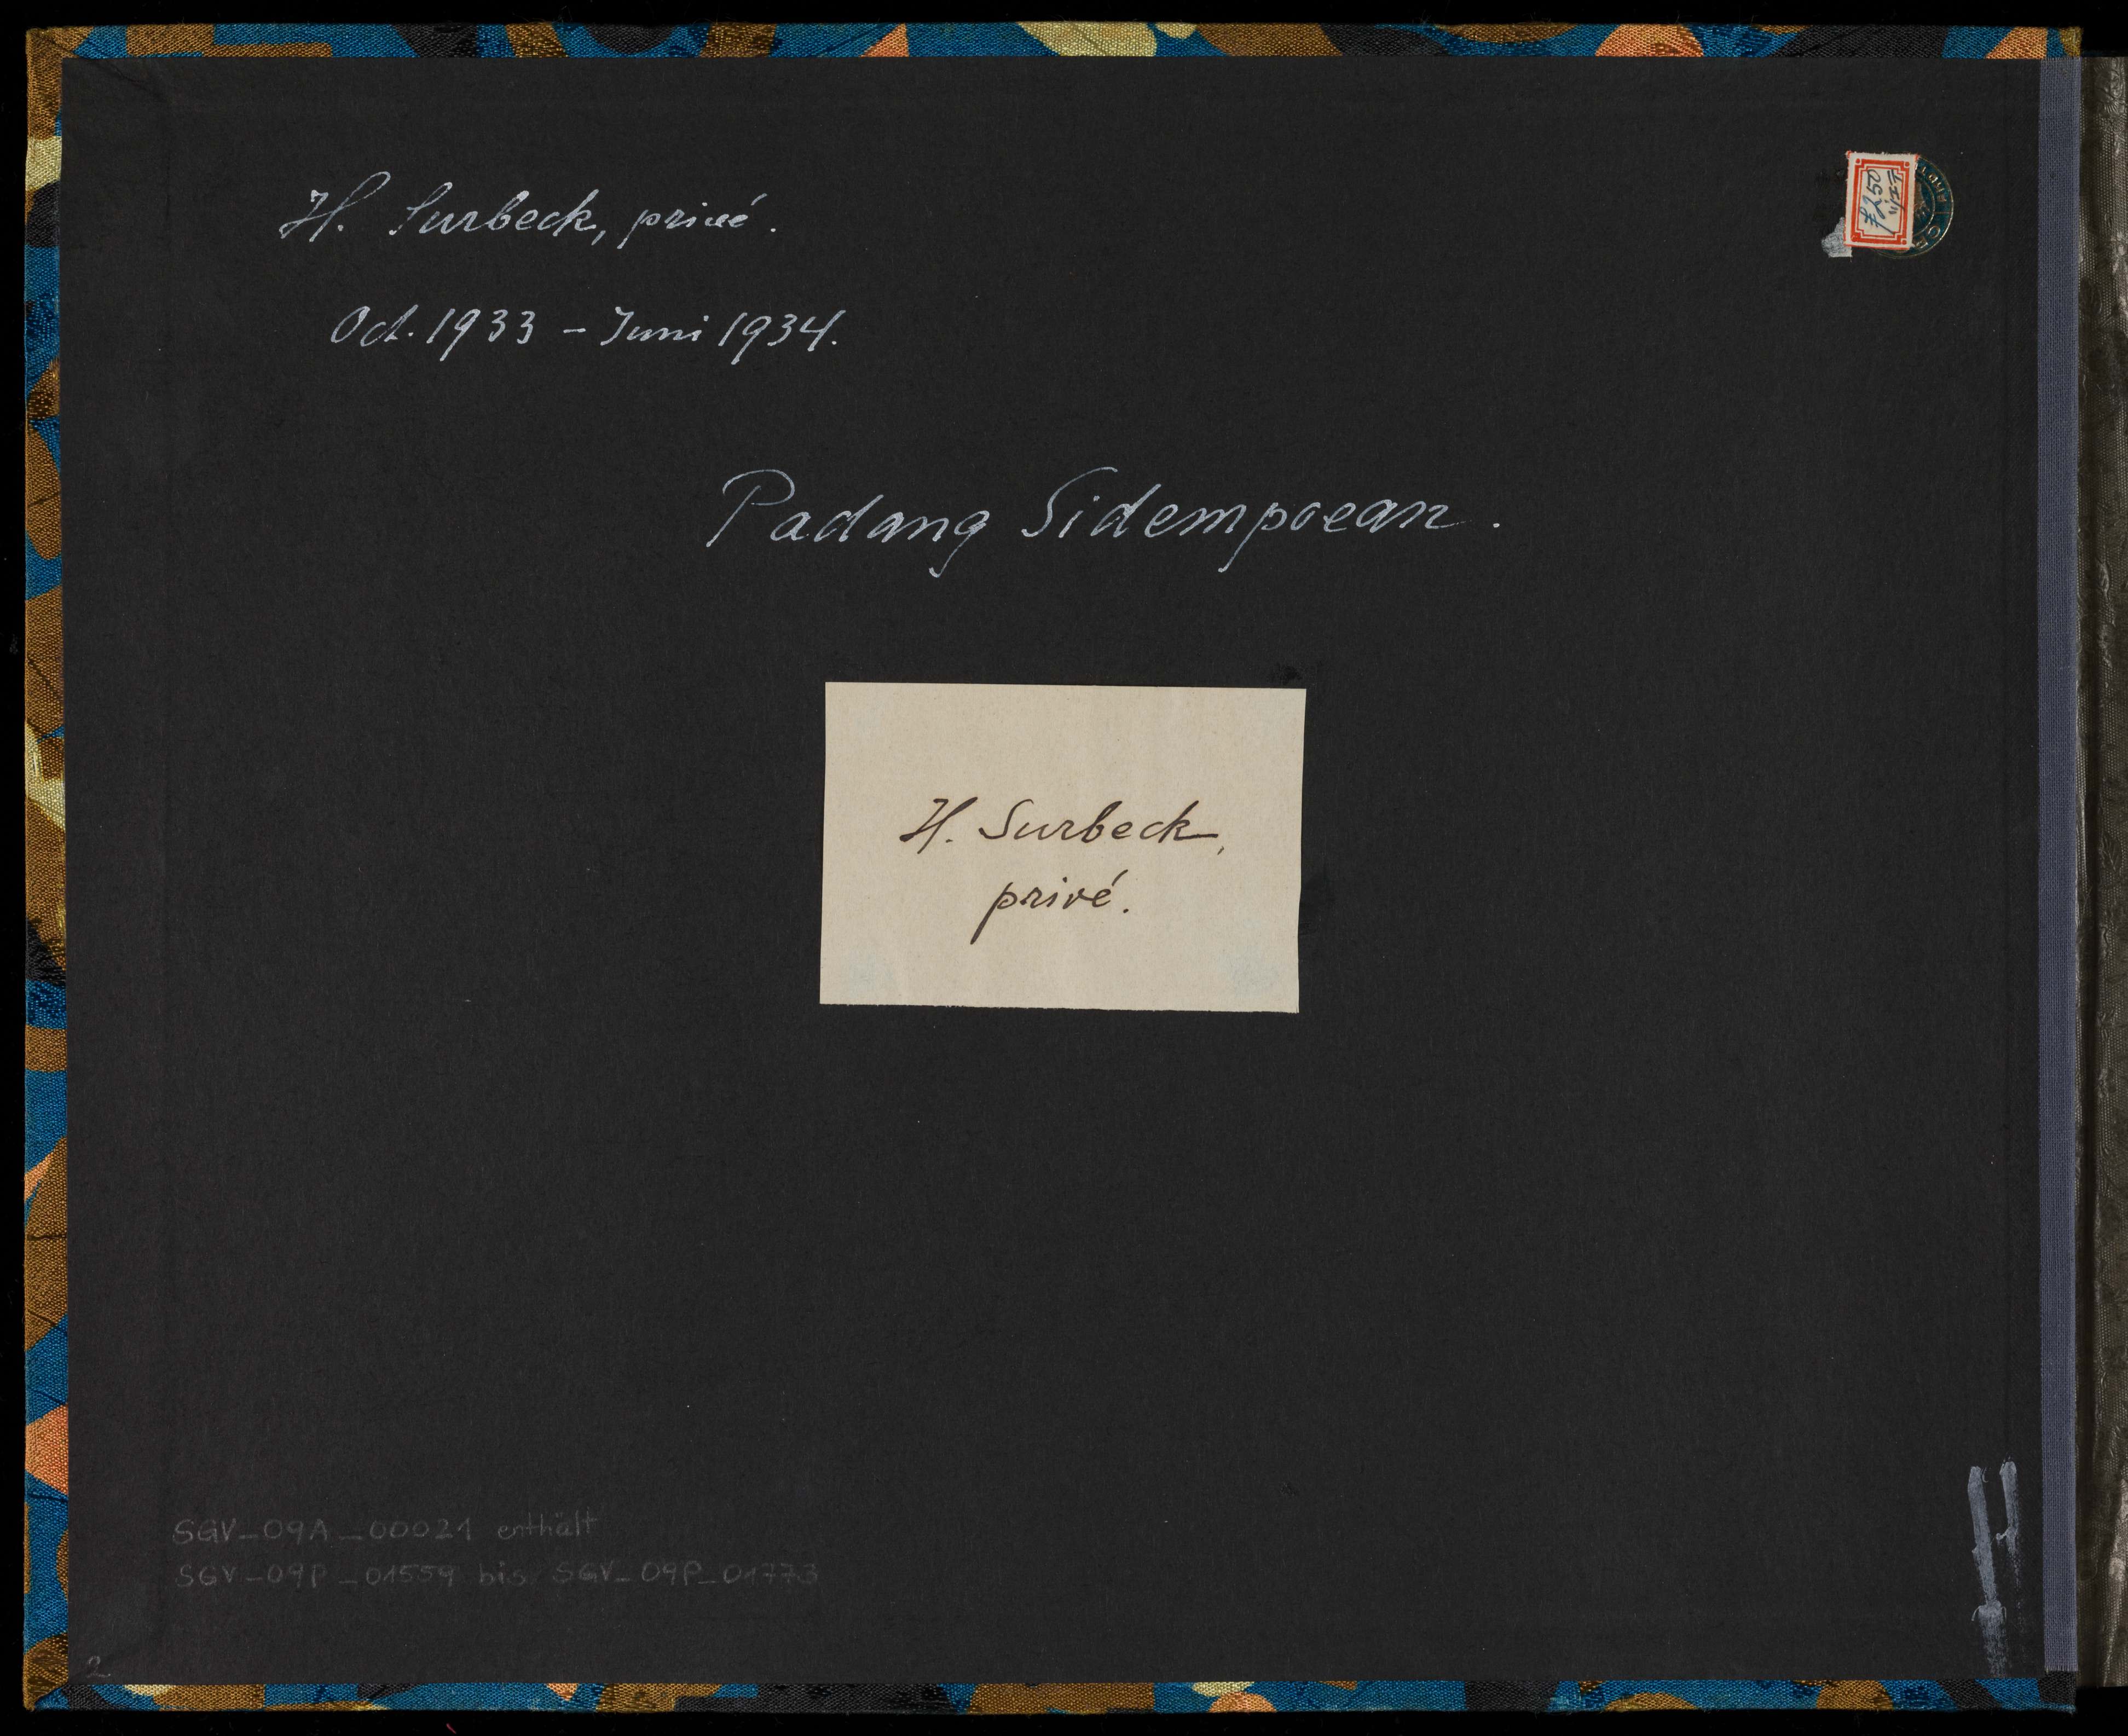 H. Surbeck, privé.
Oct. 1933 – Juni 1934.
Padang Sidempoean.
H. Surbeck,
privé.
SGV_09A_00021 enthält
SGV_09P_01559 bis SGV_09P_01773
2